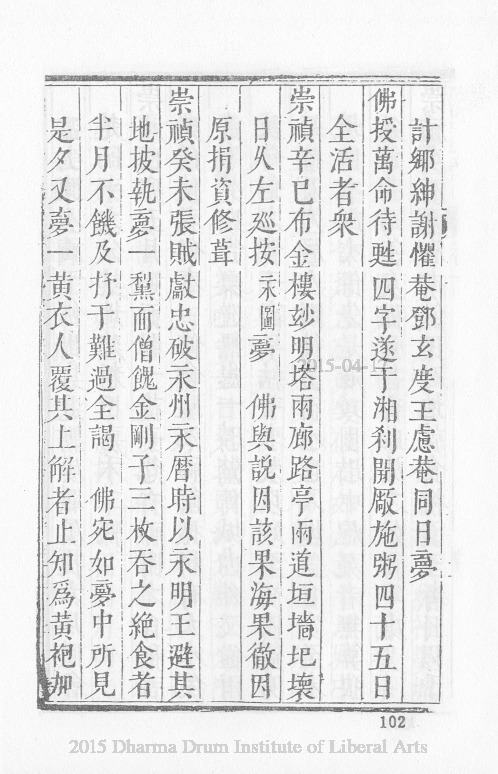 計鄉紳謝懼菴鄧玄度王慮菴同日夢
佛授萬命待甦四字遂于湘剎開厰施粥四十五日
全活者衆
崇禎辛巳布金樓玅明塔兩廊路亭兩道垣墻圯壞
日久左廵按 永圖夢 佛與說因該果海果徹因
原捐資修葺
崇禎癸未張賊獻忠破永州永曆時以永明王避其
地披執夢一黧面僧餽金剛子三枚吞之絕食者
半月不饑及抒于難過全謁 佛宛如夢中所見
是夕又夢一黃衣人覆其上解者止知爲黃袍加
102
2015-04-1
2015 Dharma Drum Institute of Liberal Arts